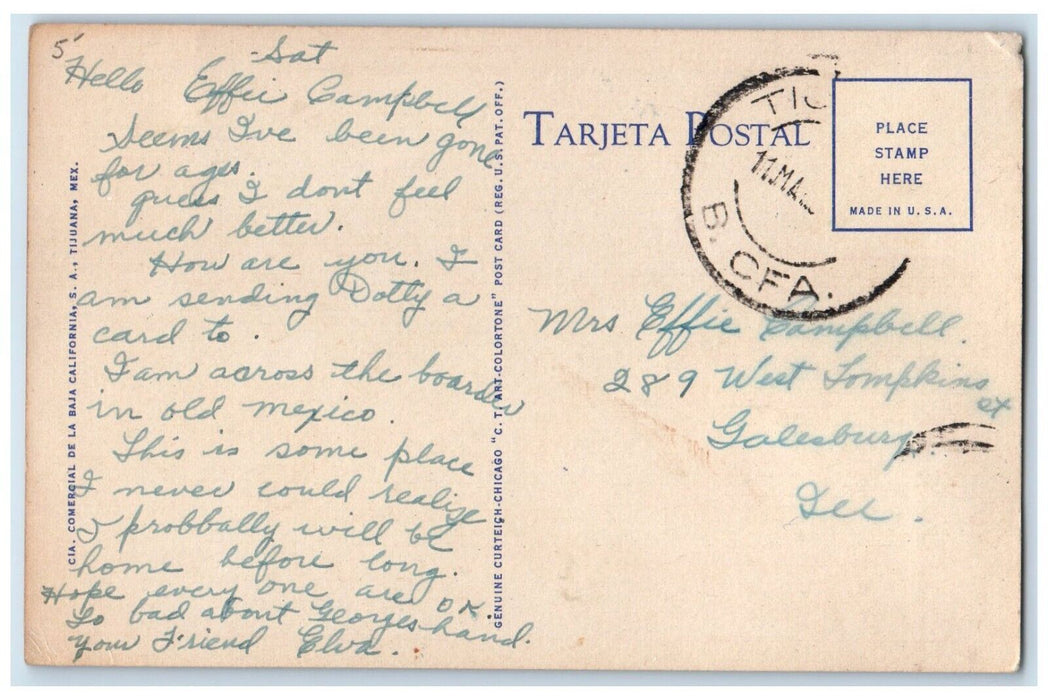 5
Sat
Hello Effie Campbell
Seems I've been gone
for ages.
guess I dont feel
much better.
How are you. I
am sending Dotty a
card to.
I am across the boarder
in old mexico.
This is some place
I never could realize
I probbally will be
home before long.
Hope every one are OK.
To bad about Georges hand.
your Friend Elva.
CIA. COMERCIAL DE LA BAJA CALIFORNIA, S. A., TIJUANA, MEX.
GENUINE CURTEICH-CHICAGO "C. T. ART-COLORTONE" POST CARD (REG. U. S. PAT. OFF.)
TARJETA POSTAL
PLACE
STAMP
HERE
MADE IN U. S. A.
TIJ
11.MA
B. CFA.
Mrs Effie Campbell.
289 West Tompkins
st
Galesburg
Ill.